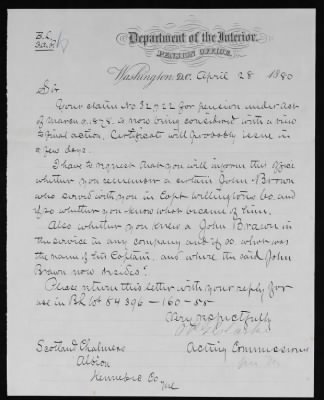 B.L.
3a.
Department of the Interior,
PENSION OFFICE,
Washington, D.C. April 28 1880
Sir
Your claim No 32722 for pension under Act
of March 9, 1878, is now being considered with a view
to final action. Certificate will probably issue in
a few days.
I have to request that you will inform this office
whether you remember a certain John Brown
who served with you in Capt Wellington's Co. and
if so whether you know what became of him.
Also whether you knew a John Brawn in
the service in any company and if so what was
the name of his Captain, and where the said John
Brawn now resides?
Please return this letter with your reply for
use in B.L. Wt 54396-160-55
Very respectfully
Acting Commissioner
Scotland Chalmers
Albion
Kennebec Co
Me